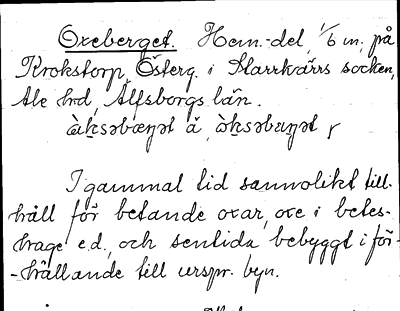 Oxeberget. Hem.-del, 1/6 m., på
Krokstorp, Österg. i Starrkärrs socken,
Ale hrd, Älfsborgs län.
I gammal tid sannolikt till-
håll för betande oxar, oxe i betes-
hage e.d., och sentida bebyggt i för-
-hållande till urspr. byn.